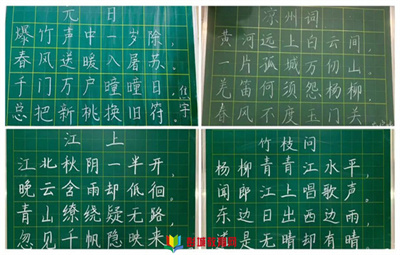 元日
爆竹声中一岁除,
春风送暖入屠苏.
千门万户曈曈日
总把新桃换旧符.
凉州词
黄河远上白云间,
一片孤城万仞山.
羌笛何须怨杨柳,
春风不度玉门关
江上
江北秋阴一半开
晚云含雨却低徊
青山缭绕疑无路
忽见千帆隐映来
竹枝问
杨柳青青江水平
闻郎江上唱歌声。
东边日出西边雨
道是无晴却有晴。